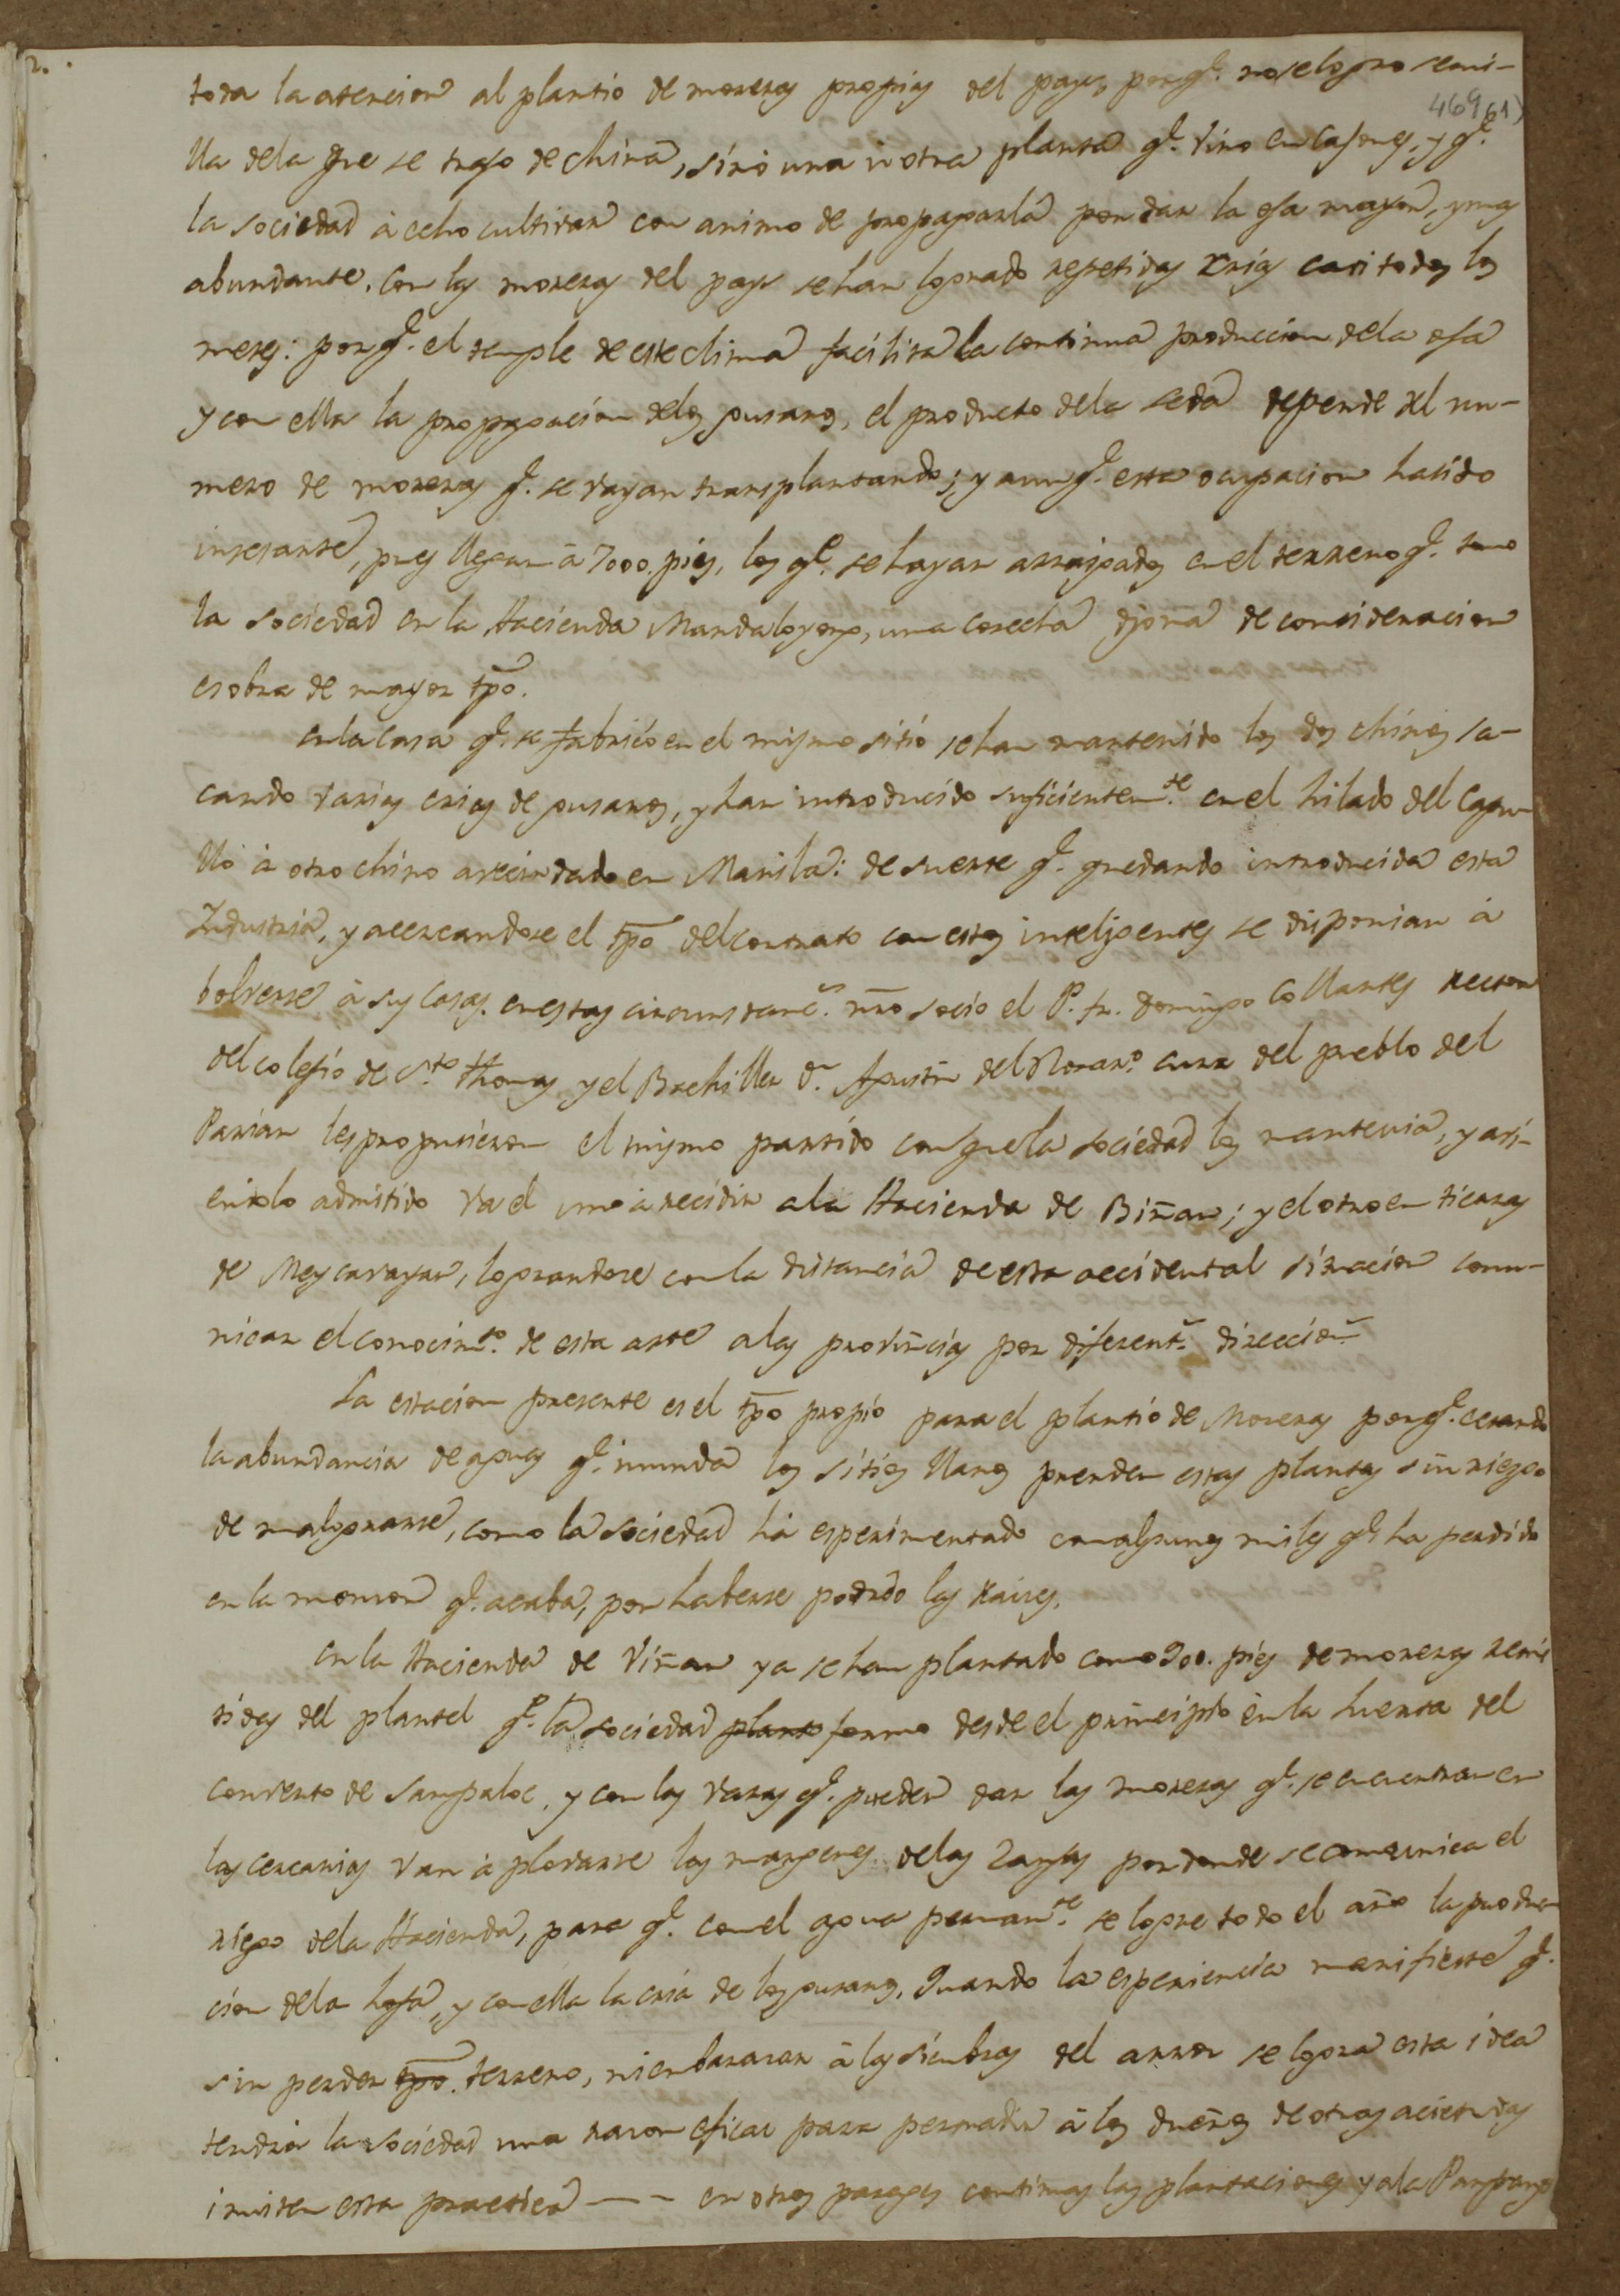 2.
toda la atencion al plantio de moreras propias del pays, porq.e no se logro semi-
469 61)
lla dela que se trajo de china, sino una ù otra planta q.e vino en cajones, y q.e
la sociedad à echo cultivar con animo de propagarla por dar la oja mayor, y mas
abundante. Con las moreras del pays se han logrado repetidas crias casi todos los
meses: porq.e el temple de este clima facilita la continua produccion dela oja
y con ella la propagacion delos gusanos, el producto dela seda depende del nu-
mero de moreras q.e se vayan transplantando; y aunq.e esta ocupacion ha sido
insesante, pues llegan à 7000. pies, los q.e se hayan arraigados en el terreno q.e tomo
la sociedad en la Hacienda Mandaloyong, una cosecha digna de consideracion
es obra de mayor tpõ.
En la casa q.e se fabricó en el mismo sitio se han mantenido los dos chinos sa-
cando varias crias de gusanos, y han introducido suficientem.te en el hilado del Capu-
llo à otro chino avecindado en Manila: de suerte q.e quedando introducida esta
Industria, y acercandose el tpõ del contrato con estos inteligentes se disponian à
bolverse à sus casas. en estas circunstanc.s nrõ socio el P. fr. Domingo Collantes Rector
del colegio de S.to Thomas y el Bachiller D.n Agustin del Rosar.o cura del pueblo del
Parian les propusieron el mismo partido con que la sociedad los mantenia, y avi-
endolo admitido va el uno à recidir ala Hacienda de Biñan; y el otro en tierras
de Meycavayan, lograndose con la distancia de esta accidental situacion comu-
nicar el conocim.to de esta arte alas provincias por diferent.s direccion.s
La estacion presente es el tpõ propio para el plantio de Moreras porq.e cesando
la abundancia de aguas q.e inunda los sitios llanos prenden estas plantas sin riesgo
de malograrse, como la sociedad hà esperimentado con algunos miles q.e ha perdido
en la monson q.e acaba, por haberse podrido las raices.
En la Hacienda de Viñan ya se han plantado como 900. pies de moreras remi-
tidas del plantel q.e la sociedad planto formo desde el principio en la huerta del
convento de Sampaloc, y con las varas q.e pueden dar las moreras q.e se encuentran en
las cercanias van à plotarse los margenes delas Zanjas por donde se comunica el
riego dela Hacienda, para q.e con el agua perman.te se logre todo el año la produc-
cion dela hoja, y con ella la cria de los gusanos. Quando la esperiencia manifieste q.e
sin perder tpõ. terreno, ni enbarazar à las siembras del arroz se logra esta idea
tendrà la sociedad una razon eficaz para persuadir à los dueños de otras aciendas
imiten esta practica - - - en otros parages continuas las plantaciones y ala Pampanga